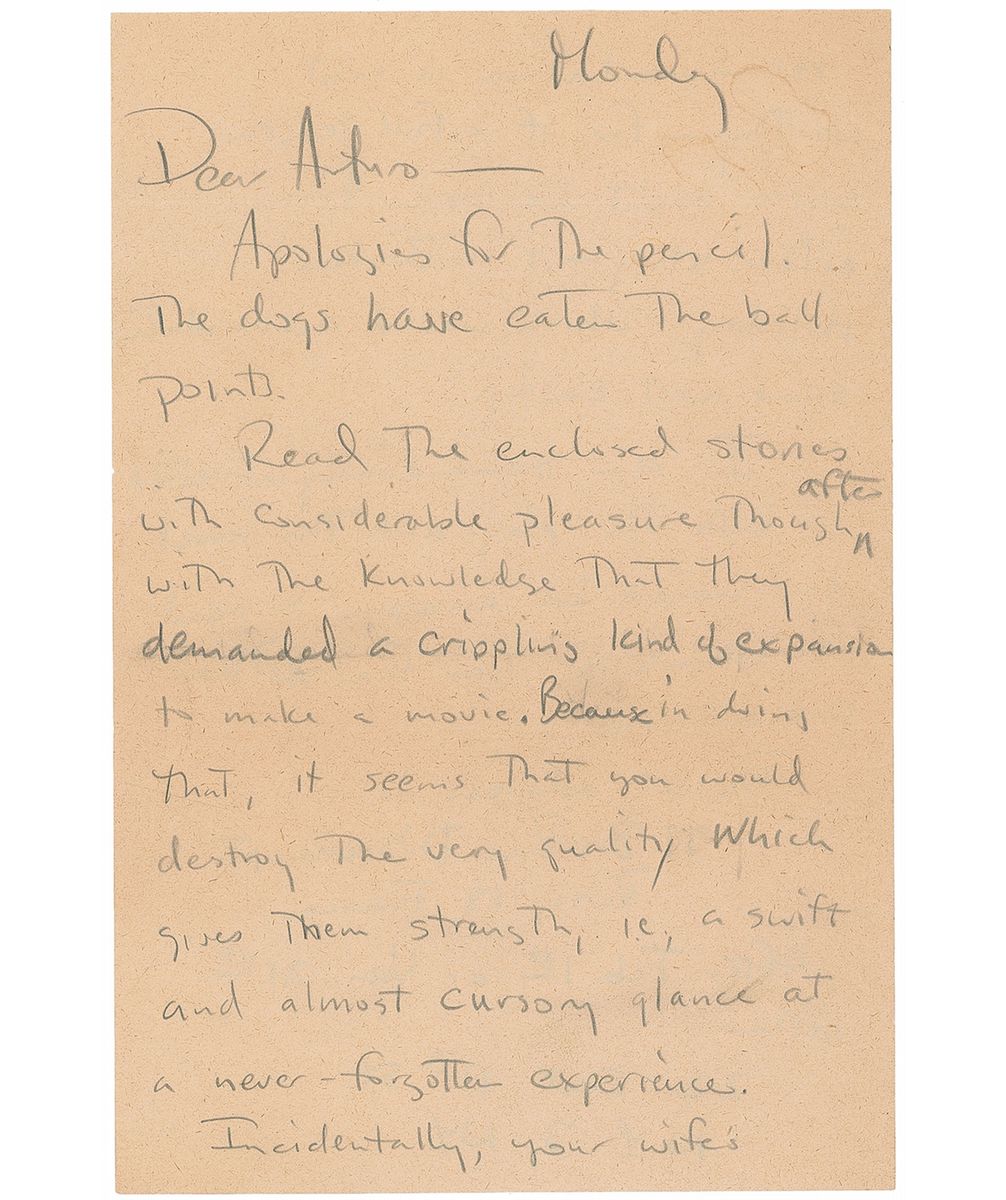 Monday
Dear Arturo —
Apologies for The pencil.
The dogs have eaten The ball
points.
Read The enclosed stories
after
with considerable pleasure Though ^
with The Knowledge That they
demanded a crippling kind of expansion
to make a movie. Because in doing
that, it seems That you would
destroy The very quality Which
gives Them strength, i.e., a swift
and almost cursory glance at
a never-forgotten experience.
Incidentally, your wife's